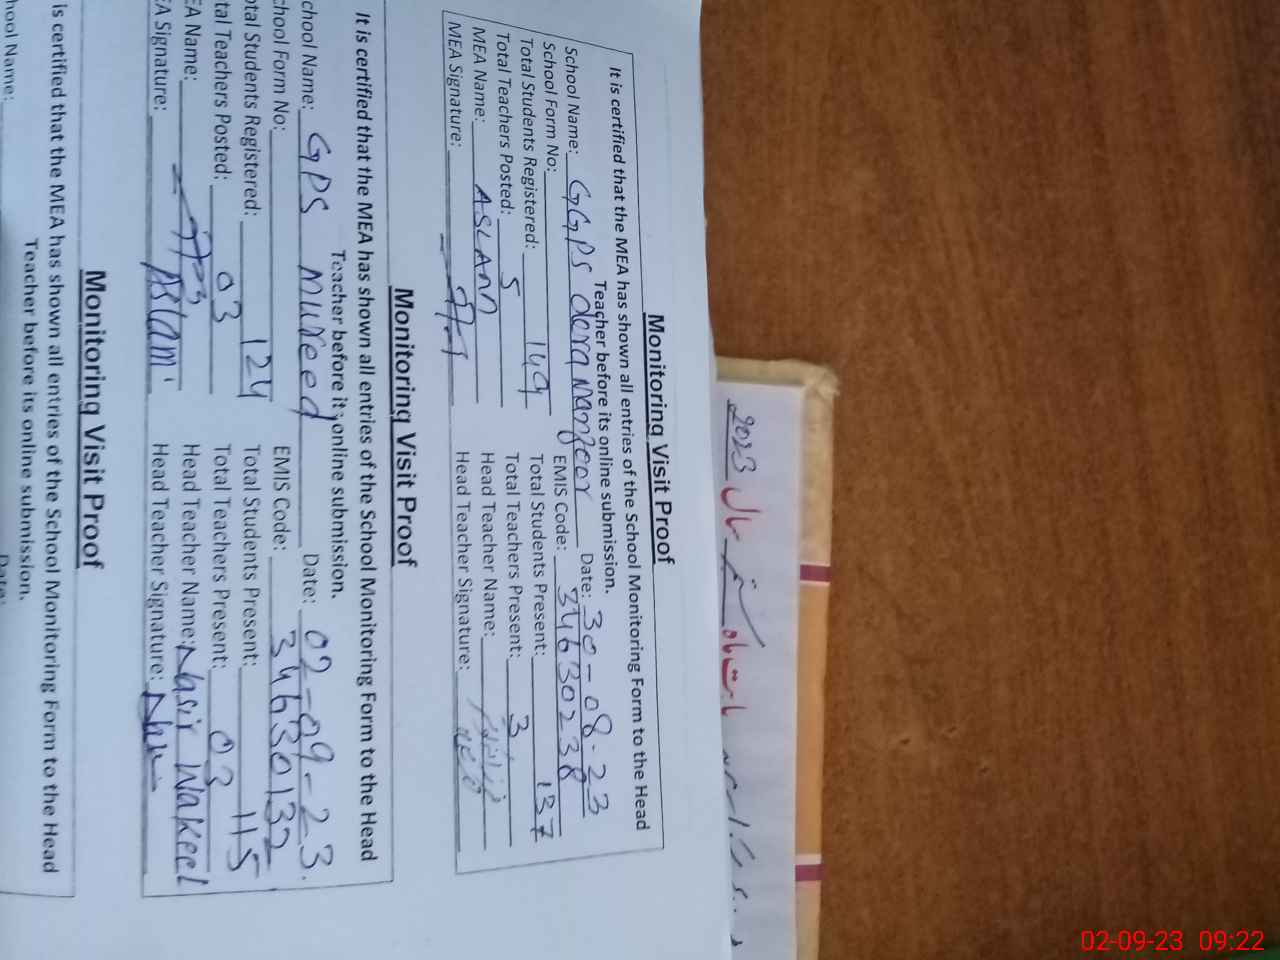 Monitoring Visit Proof
It is certified that the MEA has shown all entries of the School Monitoring Form to the Head
Teacher before its online submission.
School Name: GGPS dera manzoor Date: 30-08-23
School Form No: EMIS Code: 34630238
Total Students Registered: 149 Total Students Present: 137
Total Teachers Posted: 5 Total Teachers Present: 3
MEA Name: ASLAM Head Teacher Name:
MEA Signature: Head Teacher Signature:
Monitoring Visit Proof
It is certified that the MEA has shown all entries of the School Monitoring Form to the Head
Teacher before its online submission.
chool Name: GPS mureed Date: 02-09-23.
chool Form No: EMIS Code: 34630132
otal Students Registered: 124 Total Students Present: 115
tal Teachers Posted: 03 Total Teachers Present: 03
EA Name: Aslam Head Teacher Name: Nasir Wakeel
EA Signature: Head Teacher Signature:
Monitoring Visit Proof
is certified that the MEA has shown all entries of the School Monitoring Form to the Head
Teacher before its online submission.
hool Name: Date:
2023
02-09-23 09:22